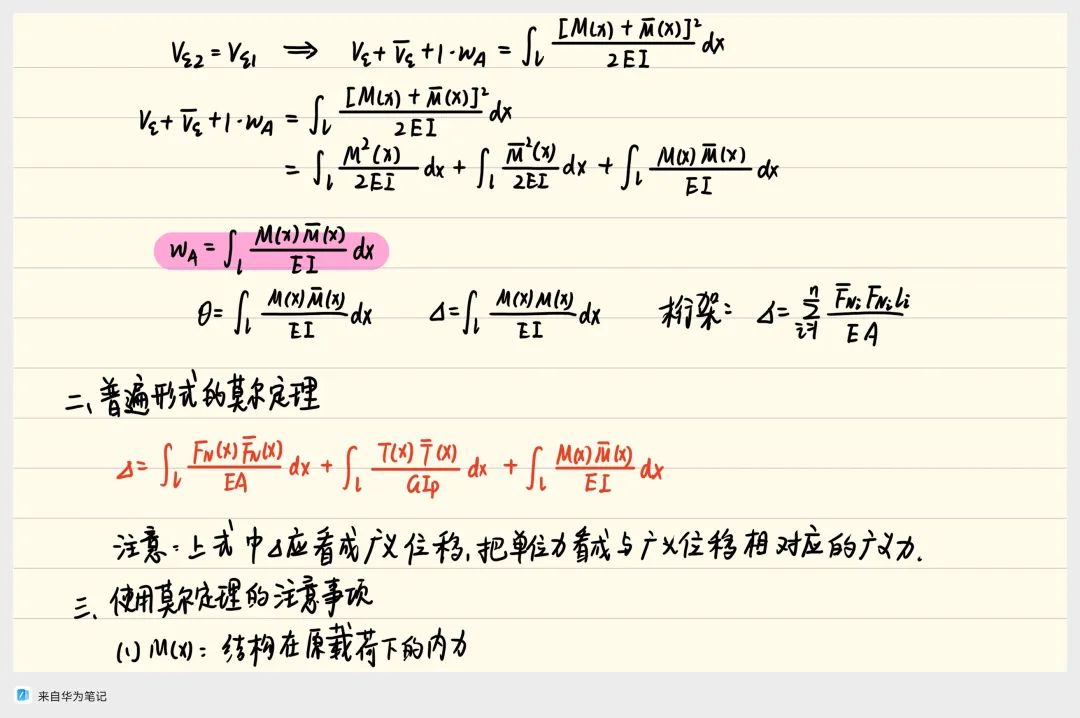 Vε2 = Vε1 ⟹ Vε + V̄ε + 1·wA = ∫l [M(x) + M̄(x)]²/2EI dx
Vε + V̄ε + 1·wA = ∫l [M(x) + M̄(x)]²/2EI dx
= ∫l M²(x)/2EI dx + ∫l M̄²(x)/2EI dx + ∫l M(x)M̄(x)/EI dx
wA = ∫l M(x)M̄(x)/EI dx
θ = ∫l M(x)M̄(x)/EI dx Δ = ∫l M(x)M(x)/EI dx 桁架: Δ = Σ(i=1→n) F̄Ni FNi li/EA
二、普遍形式的莫尔定理
Δ = ∫l FN(x)F̄N(x)/EA dx + ∫l T(x)T̄(x)/GIp dx + ∫l M(x)M̄(x)/EI dx
注意:上式中Δ应看成广义位移,把单位力看成与广义位移相对应的广义力.
三、使用莫尔定理的注意事项
(1) M(x): 结构在原载荷下的内力
来自华为笔记